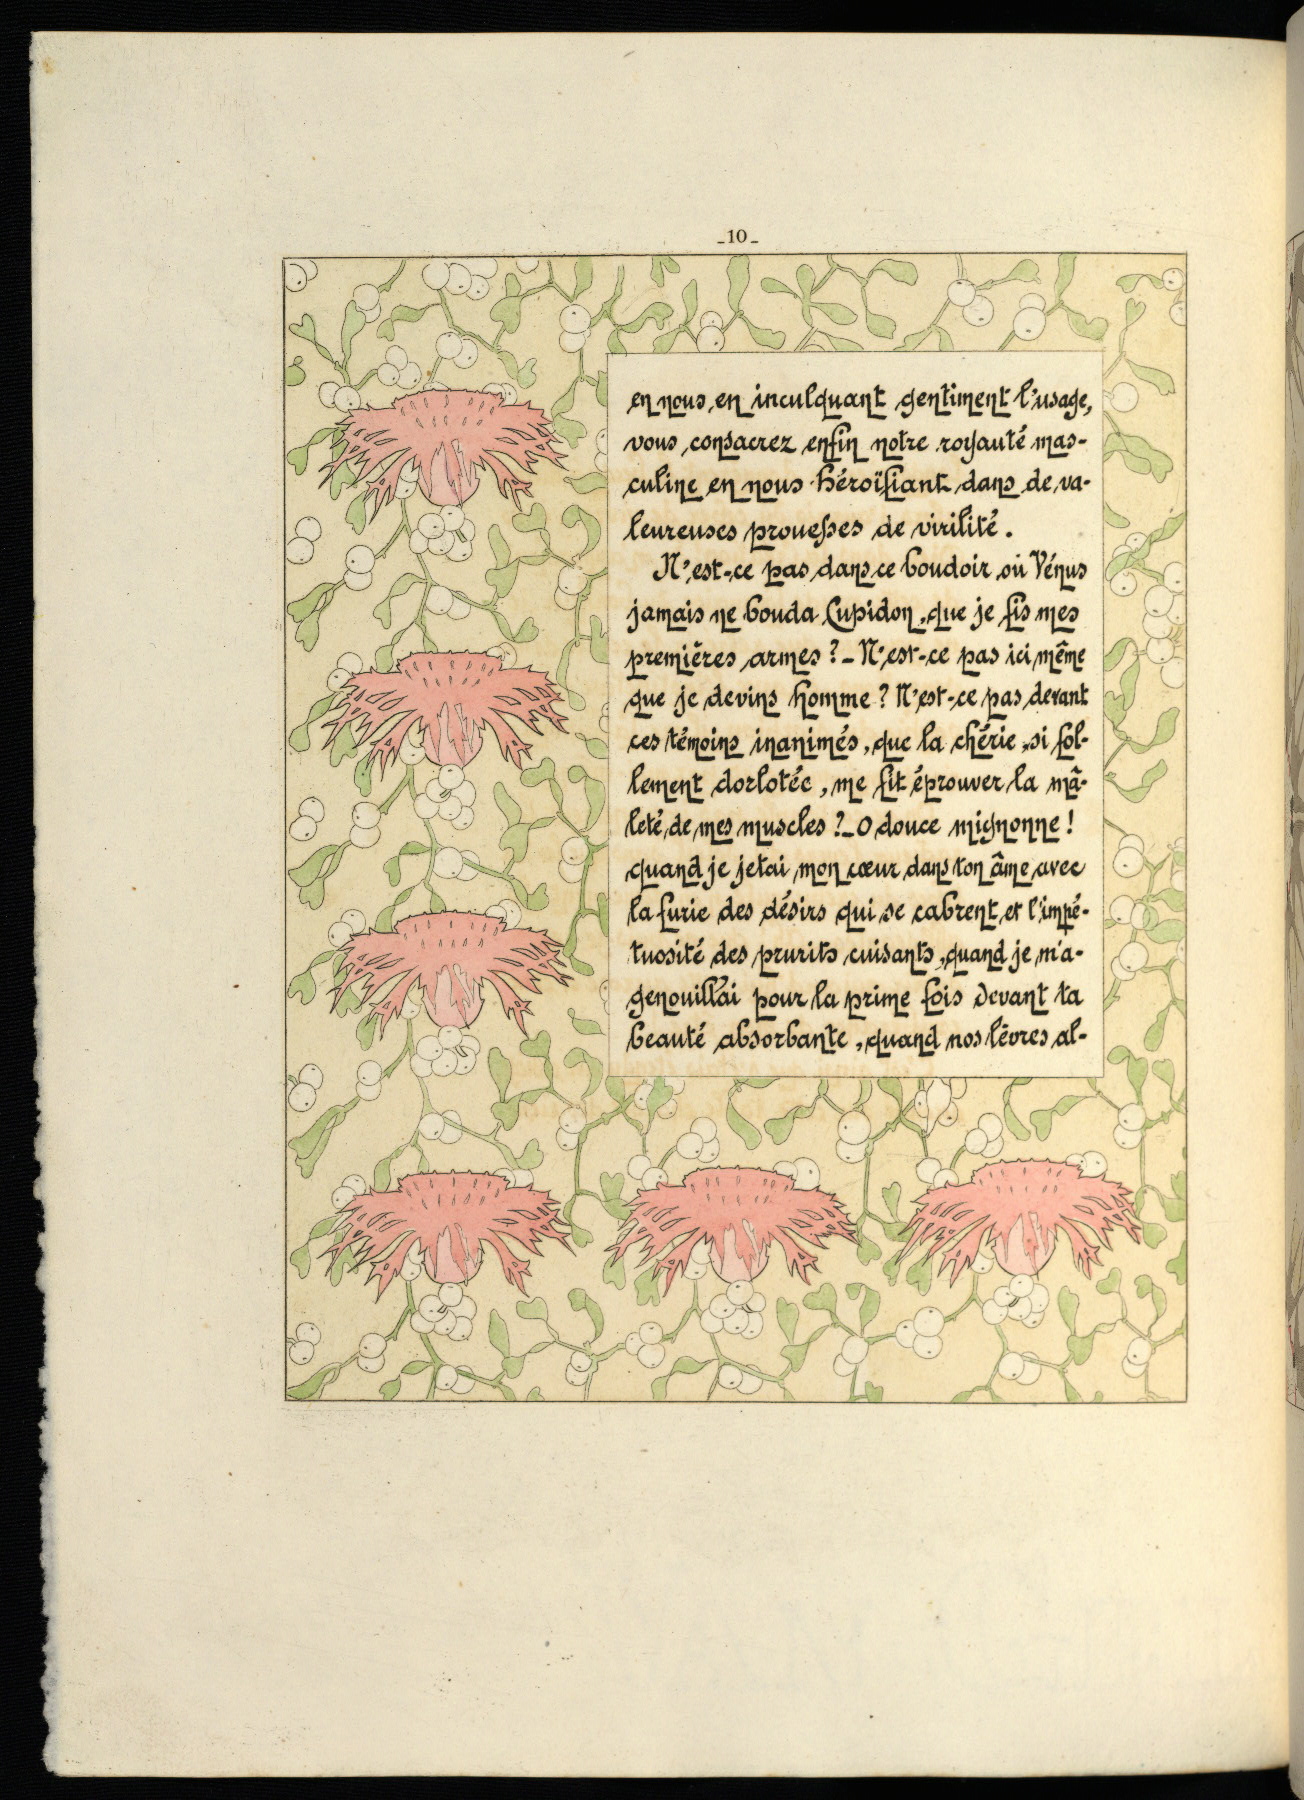 -10-
en nous en inculquant gentiment l'usage,
vous consacrez enfin notre royauté mas-
culine en nous héroïfiant dans de va-
leureuses prouesses de virilité.
N'est-ce pas dans ce boudoir où Vénus
jamais ne bouda Cupidon, que je fis mes
premières armes ?- N'est-ce pas ici même
que je devins homme ? N'est-ce pas devant
ces témoins inanimés, que la chérie, si fol-
lement dorlotée, me fit éprouver la mâ-
leté de mes muscles ?- O douce mignonne !
quand je jetai mon cœur dans ton âme avec
la furie des désirs qui se cabrent et l'impé-
tuosité des prurits cuisants, quand je m'a-
genouillai pour la prime fois devant ta
beauté absorbante, quand nos lèvres al-